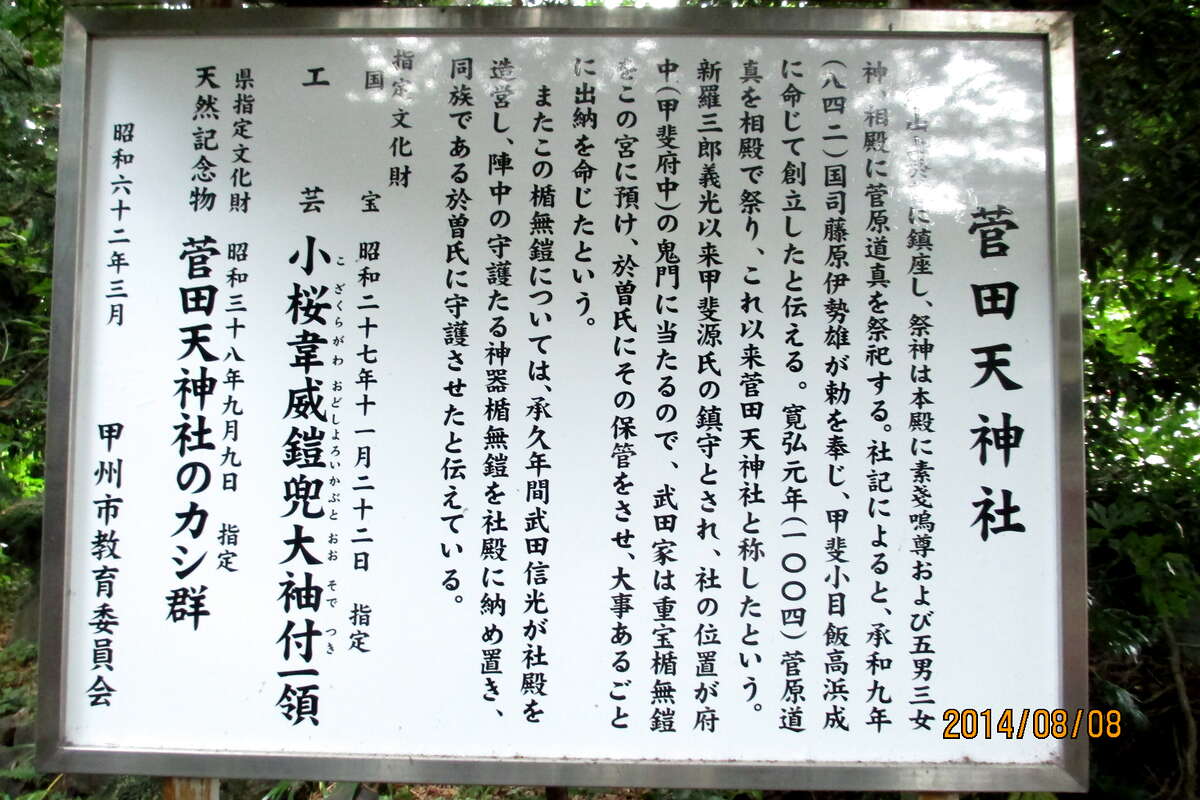 菅田天神社
に鎮座し、祭神は本殿に素戔嗚尊および五男三女
神、相殿に菅原道真を祭祀する。社記によると、承和九年
(八四二)国司藤原伊勢雄が勅を奉じ、甲斐小目飯高浜成
に命じて創立したと伝える。寛弘元年(一〇〇四)菅原道
真を相殿で祭り、これ以来菅田天神社と称したという。
新羅三郎義光以来甲斐源氏の鎮守とされ、社の位置が府
中(甲斐府中)の鬼門に当たるので、武田家は重宝楯無鎧
をこの宮に預け、於曽氏にその保管をさせ、大事あるごと
に出納を命じたという。
またこの楯無鎧については、承久年間武田信光が社殿を
造営し、陣中の守護たる神器楯無鎧を社殿に納め置き、
同族である於曽氏に守護させたと伝えている。
指定文化財
国宝 昭和二十七年十一月二十二日 指定
工芸 小桜韋威鎧兜大袖付一領
こざくらがわおどしよろいかぶとおおそでつき
県指定文化財 昭和三十八年九月九日 指定
天然記念物 菅田天神社のカシ群
昭和六十二年三月 甲州市教育委員会
2014/08/08